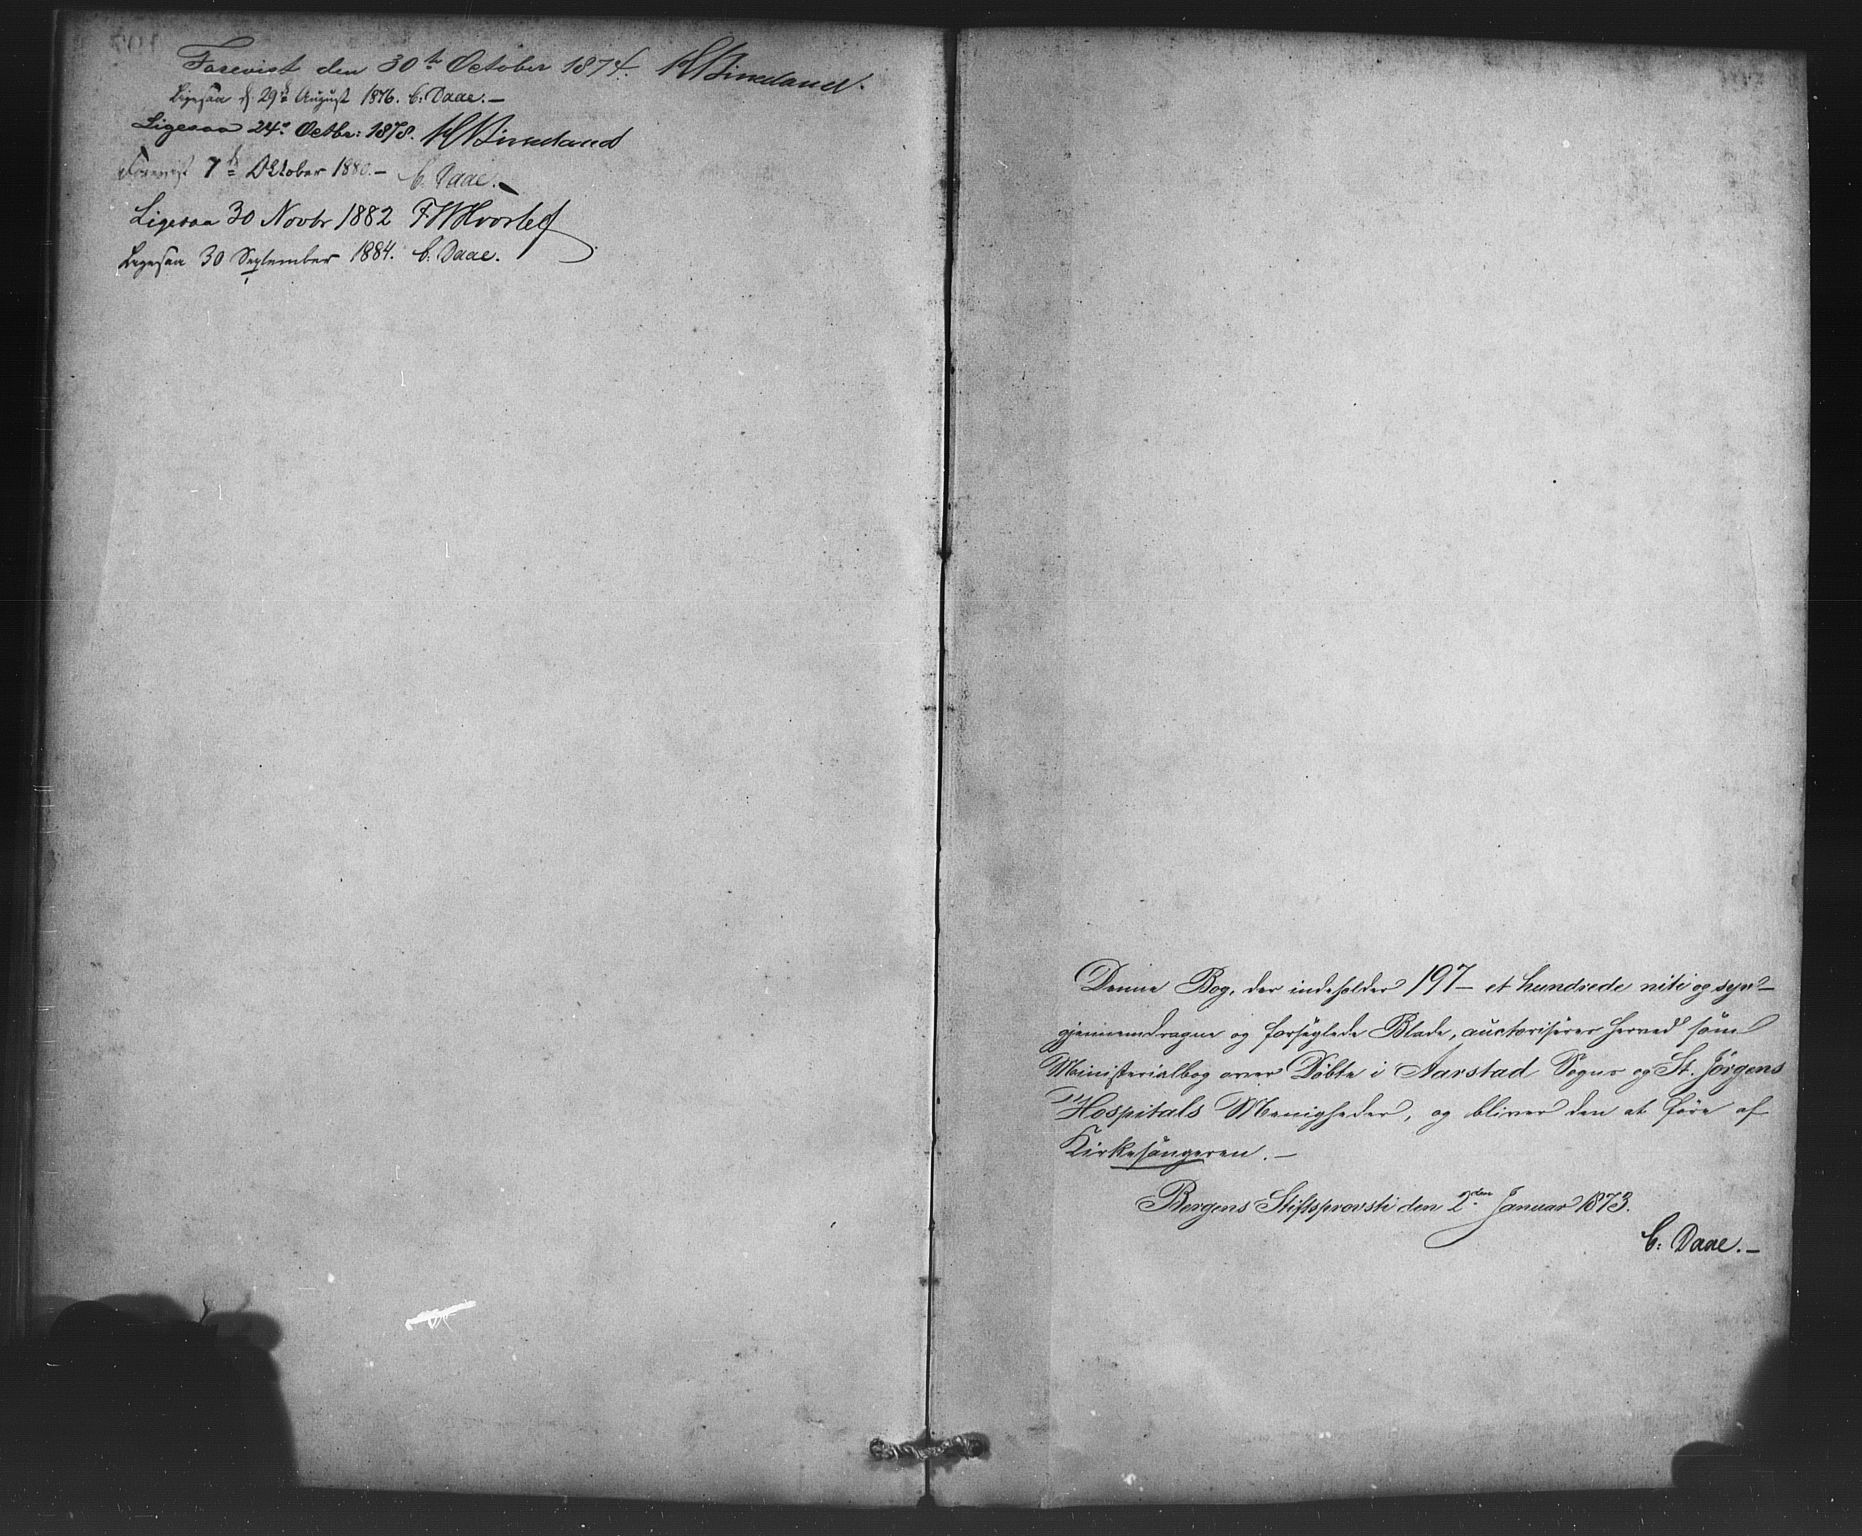 Forevist den 30te October 1874. H Birkeland.
Ligesaa d 29de August 1876. C: Daae.—
Ligesaa 24de Octbr: 1878. H Birkeland
Forevist 7de Oktober 1880.— C. Daae.—
Ligesaa 30 Novbr 1882 F. W. Hvoslef
Ligesaa 30 September 1884. C. Daae.
Denne Bog, der indeholder 197— et hundrede niti og syv—
gjennemdragne og forseglede Blade, auctoriseres herved som
Ministerialbog over Døbte i Aarstad Sogns og St. Jørgens
Hospitals Menigheder, og bliver den at føre af
Kirkesangeren.—
Bergens Stiftsprovsti den 2den Januar 1873.
C: Daae.—